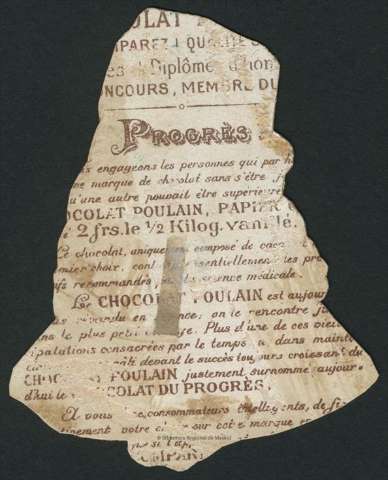 OLAT
MPAREZ LA QUALITÉ
es Diplôme d'hon
NCOURS, MEMBRE DU
PROGRÈS
s engageons les personnes qui par h
ne marque de chocolat sans s'être
u'une autre pouvait être supérieure
OCOLAT POULAIN, PAPIER
e 2 frs. le ½ Kilog. vanillé.
Ce chocolat, unique composé de caca
emier choix, cont essentiellement les pro
ufs recommandés science médicale.
Le CHOCOLAT POULAIN est aujour
s répandu en France; on le rencontre
ns le plus petit Plus d'une de ces vieil
éputations consacrées par le temps a, dans mainte
devant le succès toujours croissant du
CHOCO POULAIN justement surnommé aujour
d'hui le CHOCOLAT DU PROGRÈS.
Et vous consommateurs intelligents, de
nitivement votre choix sur cette marque
© Biblioteca Regional de Madrid